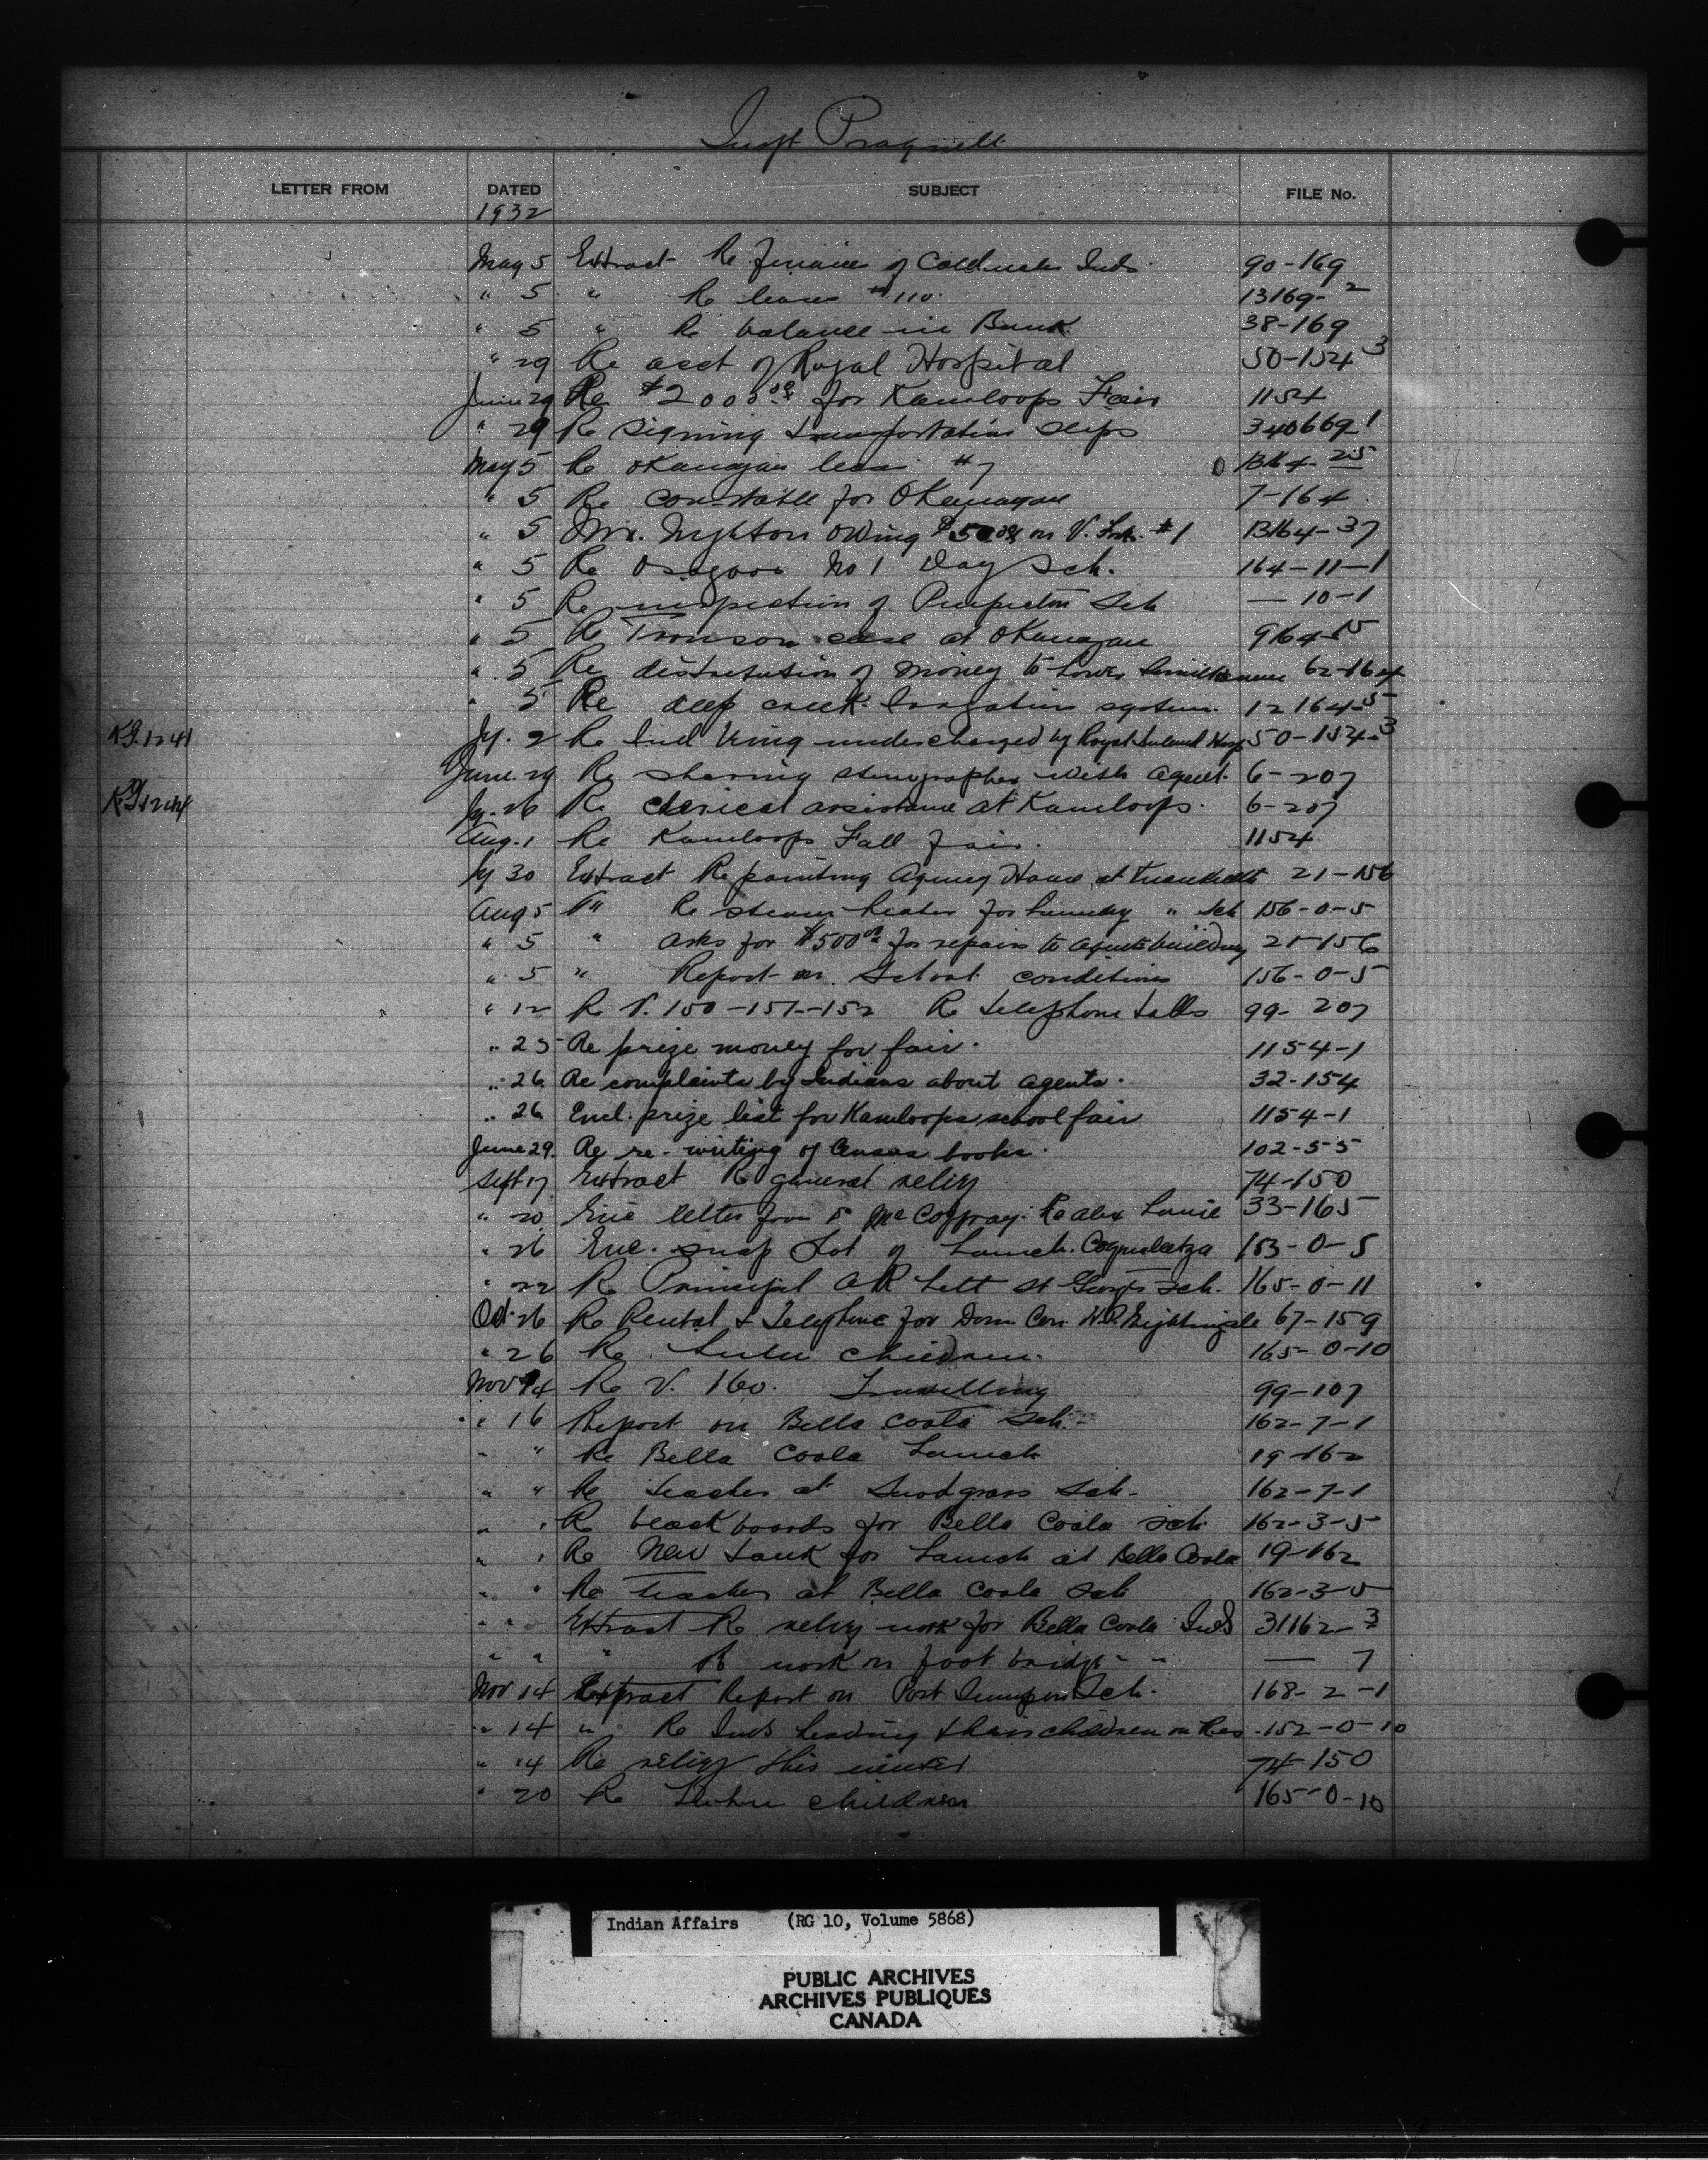 Inspt Pragnell
LETTER FROM DATED SUBJECT FILE No.
1932
May 5 Extract Re finance of Coldwater Inds. 90-169
" 5 " Re lease #110. 13169-2
" 5 " Re balance in Bank. 38-169
" 29 Re acct of Royal Hospital 50-154 3
June 29 Re $2000.00 for Kamloops Fair 1154
" 29 Re signing transportation slips 340669-1
May 5 Re Okanagan lease #7 13164-25
" 5 Re constable for Okanagan 7-164
" 5 Mr. owing on V. #1 13164-37
" 5 Re Osoyoos No 1 Day Sch. 164-11-1
" 5 Re inspection of Penticton Sch — 10-1
" 5 Re Tronson case at Okanagan 9164-15
" 5 Re distribution of money to Lower Similkameen 62-164
" 5 Re deep creek Irrigation system. 12164-5
KG.1241 Jy. 2 Re Ind King undercharged by Royal Inland Hosp 50-154-3
June 29 Re sharing stenographer with agent. 6-207
Jy. 26 Re clerical assistance at Kamloops. 6-207
Aug. 1 Re Kamloops Fall fair. 1154
Jy 30 Extract Re painting Agency House at 21-156
Aug 5 " Re steam heater for laundry " Sch 156-0-5
" 5 " asks for $500.00 for repairs to agents building 21-156
" 5 " Report on School conditions 156-0-5
" 12 Re V. 150-151-152 Re telephone tolls 99-207
" 25 Re prize money for fair. 1154-1
" 26 Re complaints by Indians about agents. 32-154
" 26 Encl. prize list for Kamloops school fair 1154-1
June 29. Re re-writing of Census books. 102-55
Sept 17 Extract Re general relief 74-150
" 20 Enc letter from Re Alex Louie 33-165
" 26 Enc. snap shot of Launch. Coqualeetza 153-0-5
" 22 Re Principal A R Lett St Georges Sch. 165-0-11
Oct. 26 Re Rental & Telephone for Dom Con. W.P. Nightingale 67-159
" 26 Re children. 165-0-10
Nov 14 Re V. 160. Travelling 99-107
" 16 Report on Bella Coola Sch. 162-7-1
" " Re Bella Coola Launch 19-162
" " Re teacher at Snodgrass Sch. 162-7-1
" " Re blackboards for Bella Coola sch 162-3-5
" " Re New tank for Launch at Bella Coola 19-162
" " Re teacher at Bella Coola Sch 162-3-5
" " Extract Re relief work for Bella Coola Inds 31162-3
" " " Re work on foot bridge " " — 7
Nov 14 Extract Report on Port Simpson Sch. 168-2-1
" 14 " Re Inds their children on Res. 152-0-10
" 14 Re relief this winter 74-150
" 20 Re children 165-0-10
Indian Affairs (RG 10, Volume 5868)
PUBLIC ARCHIVES
ARCHIVES PUBLIQUES
CANADA